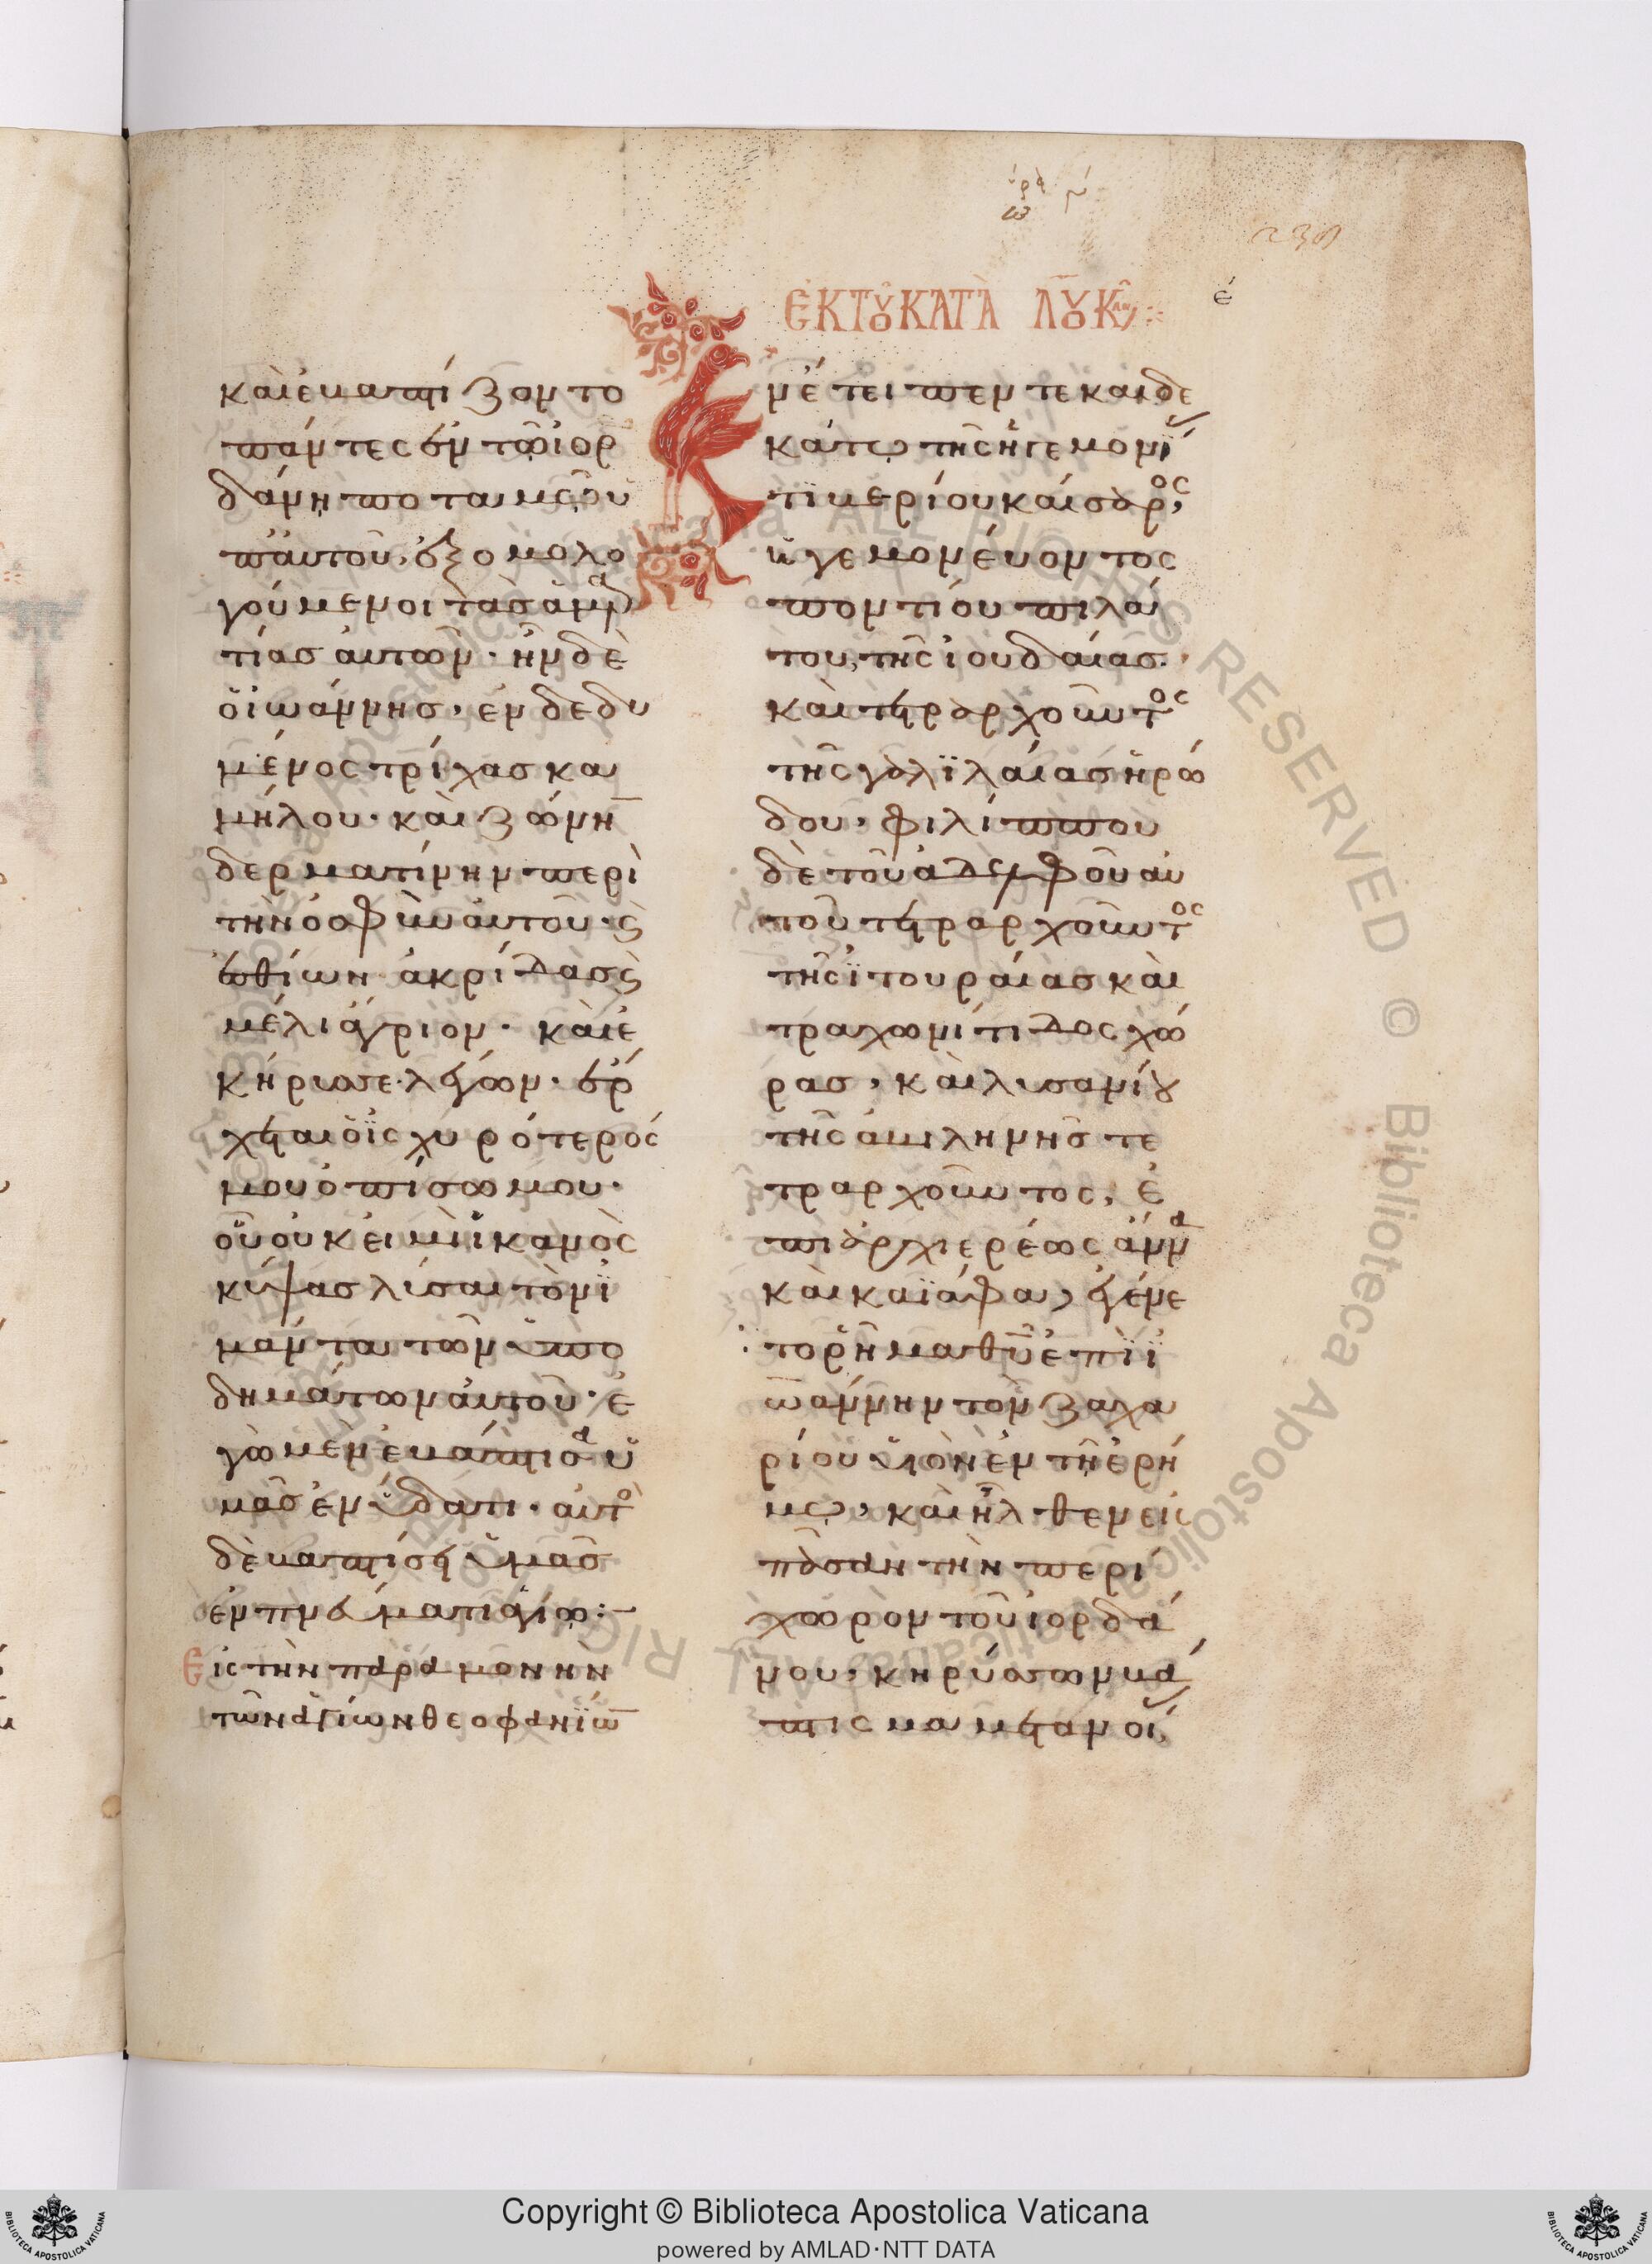 239
ἐκ τοῦ κατὰ Λουκᾶν
έ
καὶ ἐβαπτίζοντο
πάντες ἐν τῷ ἰορ
δάνῃ ποταμῷ ὑ
π᾽ αὐτοῦ, ἐξομολο
γούμενοι τὰς ἁμαρ
τίας αὐτῶν· ἦν δὲ
ὁ ἰωάννης, ἐνδεδυ
μένος τρίχας κα
μήλου· καὶ ζώνη̅
δερματίνην περὶ
τὴν ὀσφὺν αὐτοῦ· ϛ̀
ἐσθίων ἀκρίδας ϛ̀
μέλι ἄγριον· καὶ ἐ
κήρυσσε λέγων· ἔρ
χεται ὁ ἰσχυρότερός
μου ὀπίσω μου·
οὗ οὐκ εἰμὶ ἱκανὸς
κύψας λύσαι τὸν ϊ
μάντα τῶν ὑπο
δημάτων αὐτοῦ· ἐ
γὼ μὲν ἐβάπτισα ὑ
μᾶς ἐν ὕδατι· αὐτὸ
δὲ βαπτίσει ὑμᾶς
ἐν πνεύματι ἁγίῳ:–
Εἰς τὴν παραμονὴν
τῶν ἁγίων θεοφανΐω̅
ν ἔτει πεντεκαιδε
κάτῳ τῆς ἡγεμονί
τϊβερίου καίσαρος,
ἡγεμονέυοντος
ποντίου πιλά
του, τῆς ἰουδαίας·
καὶ τετραρχοῦντος
τῆς γαλϊλαίας ἡρώ
δου, φιλίππου
δὲ τοῦ ἀδελφοῦ αὐ
τοῦ τετραρχοῦντος
τῆς ϊτουραίας καὶ
τραχωνίτιδος χώ
ρας, καὶ λυσανίου
τῆς ἀβιληνῆς τε
τραρχοῦντος, ἐ
πὶ ἀρχιερέως ἄννα
καὶ καϊάφα, ἐγένε
το ῥῆμα θ̅υ̅ ἐπὶ ἰ
ωάννην τὸν ζαχα
ρίου υἱὸν ἐν τῇ ἐρή
μῳ, καὶ ἦλθεν εἰς
πᾶσαν τὴν περί
χωρον τοῦ ἰορδά
νου, κηρύσσων βά
πτισμα μετανοί,
Copyright © Biblioteca Apostolica Vaticana
powered by AMLAD·NTT DATA